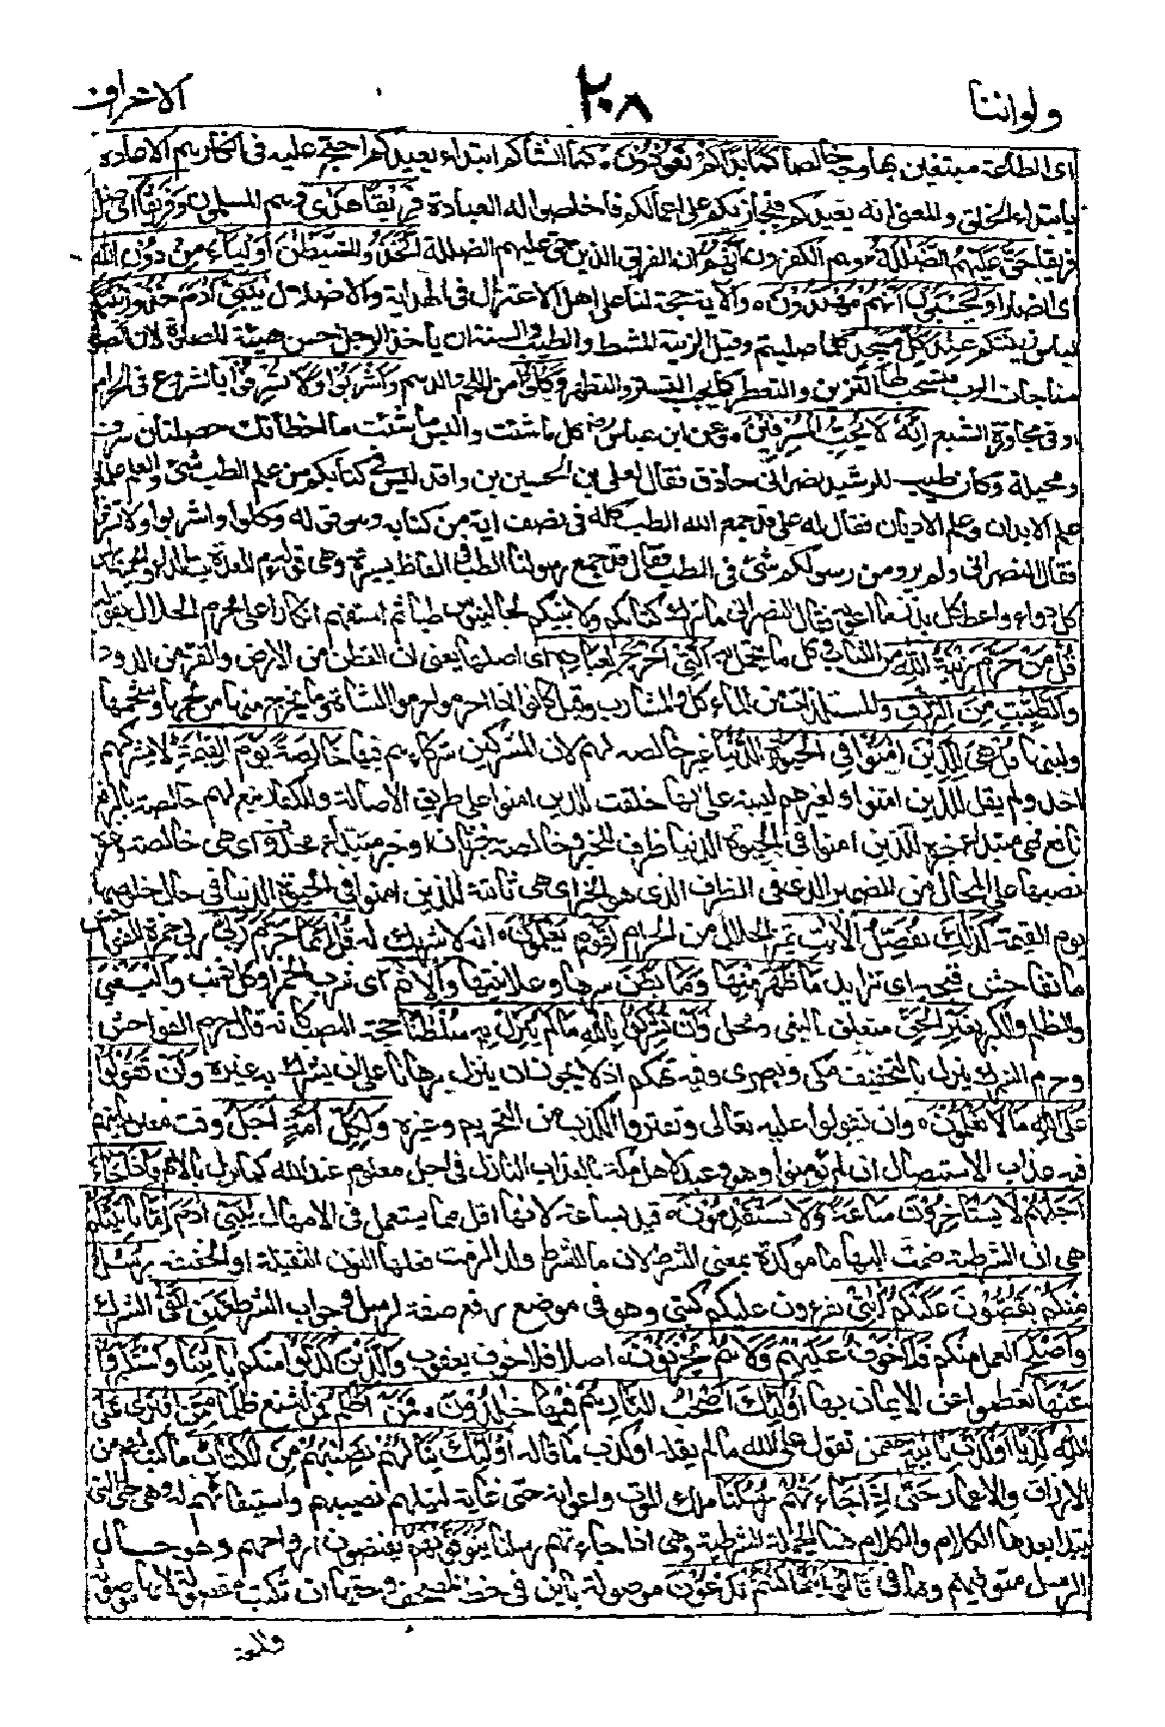 ولواننا ٢٠٨ الاعراف
اى الطاعة مبتغين بها وجهه خالصا كَمَا بَدَأَكُمْ تَعُودُونَ ه كما انشأكم ابتداء يعيدكم احتج عليهم فى انكارهم الاعادة
بابتداء الخلق والمعنى انه يعيدكم فيجازيكم على اعمالكم فاخلصوا له العبادة فَرِيقًا هَدٰى وهم المسلمون وَفَرِيقًا اى اضل
فريقا حَقَّ عَلَيْهِمُ الضَّلٰلَةُ وهم الكفرون اِنَّهُمُ ان الفريق الذين حق عليهم الضللة اتَّخَذُوا الشَّيٰطِينَ أَوْلِيَاءَ مِنْ دُونِ اللهِ
اى انصارا وَيَحْسَبُونَ اَنَّهُمْ مُهْتَدُونَ ه والآية حجة لنا على اهل الاعتزال فى الهداية والاضلال يٰبَنِى اٰدَمَ خُذُوا زِينَتَكُمْ
لباس زينتكم عِنْدَ كُلِّ مَسْجِدٍ كلما صليتم وقيل الزينة المشط والطيب والسنة ان ياخذ الرجل احسن هيئة للصلوة لان الصلوة
مناجات الرب فيستحب لها التزين والتعطر كما يجب التستر والتطهر وَكُلُوا من اللحم والدسم وَاشْرَبُوا وَلَا تُسْرِفُوا بالشروع فى الحرام
او فى مجاوزة الشبع اِنَّهُ لَا يُحِبُّ الْمُسْرِفِينَ ه وعن ابن عباس رض كل ما شئت والبس ما شئت ما اخطأتك خصلتان سرف
ومخيلة وكان طبيب للرشيد نصرانى حاذق فقال لعلى بن الحسين بن واقد ليس فى كتابكم من علم الطب شىء والعلم علمان
علم الابدان وعلم الاديان فقال له على قد جمع الله الطب كله فى نصف اية من كتابه وهو قوله وكلوا واشربوا ولا تسرفوا
فقال النصرانى ولم يرو من رسولكم شىء فى الطب فقال قد جمع رسولنا الطب فى الفاظ يسيرة وهى قوله المعدة بيت الداء والحمية راس
كل دواء واعط كل بدن ما اعتاده فقال النصرانى ما ترك كتابكم ولا نبيكم لجالينوس طبا ثم استفهم انكارا على محرم الحلال بقوله
قُلْ مَنْ حَرَّمَ زِينَةَ اللهِ من الثياب وكل ما يتجمل به الَّتِى اَخْرَجَ لِعِبَادِهٖ اى اصلها يعنى القطن من الارض والقز من الدود
وَالطَّيِّبٰتِ مِنَ الرِّزْقِ والمستلذات من المآكل والمشارب وقيل كانوا اذا احرموا حرموا الشاة وما يخرج منها من لحمها وشحمها
ولبنها قُلْ هِىَ لِلَّذِينَ اٰمَنُوا فِى الْحَيٰوةِ الدُّنْيَا غير خالصة لهم لان المشركين شركاؤهم فيها خَالِصَةً يَوْمَ الْقِيٰمَةِ لا يشركهم
احد ولم يقل للذين امنوا ولغيرهم لينبه على انها خلقت للذين امنوا على طريق الاصالة والكفار تبع لهم خالصة بالرفع
نافع فهى مبتدأ خبره للذين امنوا فى الحيوة الدنيا ظرف للخبر وخالصة خبر ثان او خبر مبتدأ محذوف اى هى خالصة وغيره
نصبها على الحال من الضمير الذى فى الظرف الذى هو الخبر اى هى ثابتة للذين امنوا فى الحيوة الدنيا فى حال خلوصها
يوم القيمة كَذٰلِكَ نُفَصِّلُ الْاٰيٰتِ نميز الحلال من الحرام لِقَوْمٍ يَعْلَمُونَ ه انه لا شريك له قُلْ اِنَّمَا حَرَّمَ رَبِّىَ
ما تفاحش قبحه اى تزايد مَا ظَهَرَ مِنْهَا وَمَا بَطَنَ سرها وعلانيتها وَالْاِثْمَ اى شرب الخمر او كل ذنب وَالْبَغْىَ
والظلم والكبر بِغَيْرِ الْحَقِّ متعلق بالبغى ومحل وَاَنْ تُشْرِكُوا بِاللهِ مَا لَمْ يُنَزِّلْ بِهٖ سُلْطٰنًا حجة النصب كانه قال حرم الفواحش
وحرم الشرك ينزل بالتخفيف مكى وبصرى وفيه تهكم اذ لا يجوز ان ينزل برهانا على ان يشرك به غيره وَاَنْ تَقُولُوا
عَلَى اللهِ مَا لَا تَعْلَمُونَ ه وان تقولوا عليه تعالى وتفتروا الكذب من التحريم وغيره وَلِكُلِّ اُمَّةٍ اَجَلٌ وقت معين ياتيهم
فيه عذاب الاستيصال ان لم يؤمنوا وهو وعيد لاهل مكة بالعذاب النازل فى اجل معلوم عند الله كما نزل بالامم فَاِذَا جَاءَ
اَجَلُهُمْ لَا يَسْتَاْخِرُونَ سَاعَةً وَلَا يَسْتَقْدِمُونَ ه قيد بساعة لانها اقل ما يستعمل فى الامهال يٰبَنِى اٰدَمَ اِمَّا يَاْتِيَنَّكُمْ
هى ان الشرطية ضمت اليها ما مؤكدة بمعنى الشرط لان ما للشرط ولذا لزمت فعلها النون الثقيلة او الخفيفة رُسُلٌ
مِنْكُمْ يَقُصُّونَ عَلَيْكُمْ اٰيٰتِى يقرءون عليكم كتبى وهو فى موضع رفع صفة لرسل وجواب الشرط فَمَنِ اتَّقٰى الشرك
وَاَصْلَحَ العمل منكم فَلَا خَوْفٌ عَلَيْهِمْ وَلَا هُمْ يَحْزَنُونَ ه اصلا فلا خوف يعقوب وَالَّذِينَ كَذَّبُوا منكم بِاٰيٰتِنَا وَاسْتَكْبَرُوا
عَنْهَا تعظموا عن الايمان بها اُولٰئِكَ اَصْحٰبُ النَّارِ هُمْ فِيهَا خٰلِدُونَ ه فَمَنْ اَظْلَمُ فمن اشنع ظلما مِمَّنِ افْتَرٰى عَلَى
اللهِ كَذِبًا اَوْ كَذَّبَ بِاٰيٰتِهٖ ممن تقول على الله ما لم يقله او كذب ما قاله اُولٰئِكَ يَنَالُهُمْ نَصِيبُهُمْ مِنَ الْكِتٰبِ ما كتب لهم من
الارزاق والاعمار حَتّٰى اِذَا جَاءَتْهُمْ رُسُلُنَا ملك الموت واعوانه حتى غاية لنيلهم نصيبهم واستيفائهم له وهى حتى التى
يبتدأ بعدها الكلام والكلام هنا الجملة الشرطية وهى اذا جاءتهم رسلنا يَتَوَفَّوْنَهُمْ يقبضون ارواحهم وهو حال
الرسل متوفيهم وما فى قَالُوا اَيْنَ مَا كُنْتُمْ تَدْعُونَ موصولة باين فى خط المصحف وحقها ان تكتب مفصولة لانها موصولة